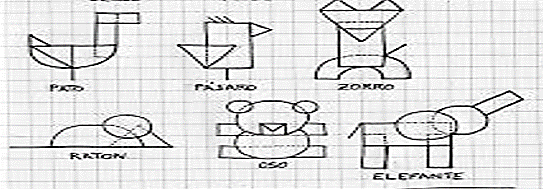 PATO PÁJARO ZORRO
RATON OSO ELEFANTE